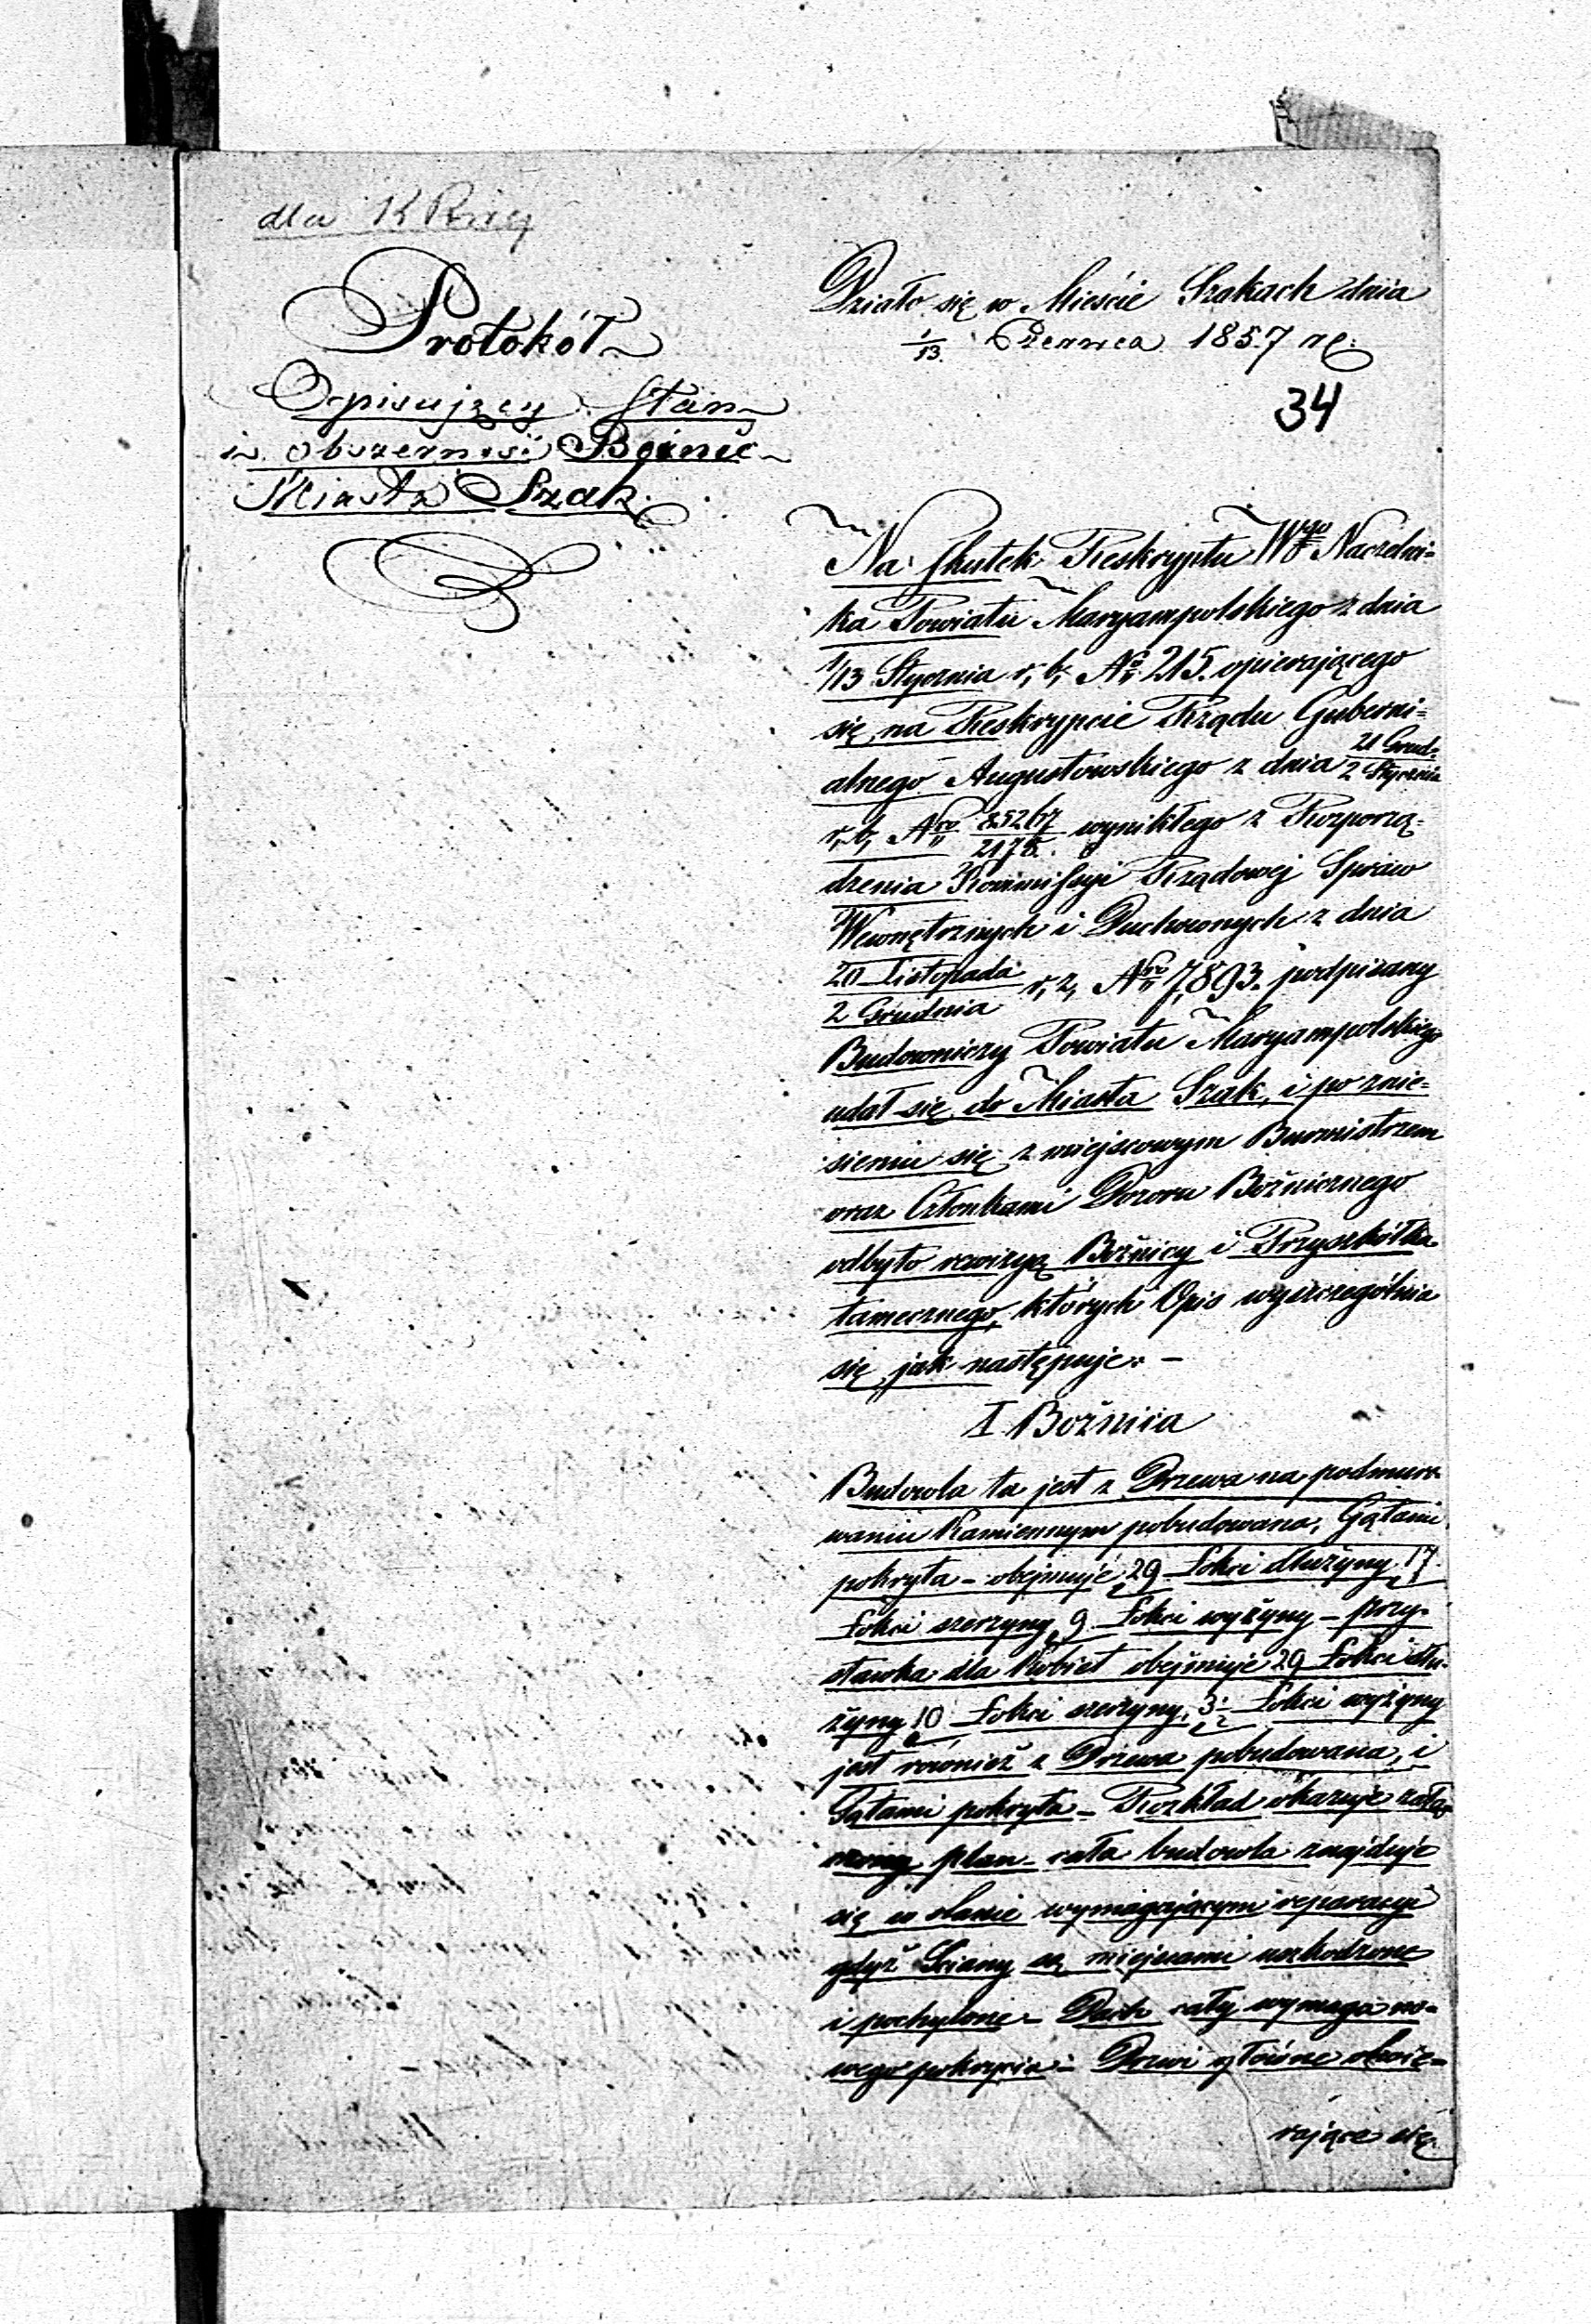 dla K Rząd
Protokół
Opisujący Stan
i obszerność Bóżnic
Miasta Szak.
Działo się w Mieście Szakach dnia
1/13. Czerwca 1857 r.
34
Na Skutek Reskryptu Wgo Naczelni=
ka Powiatu Maryampolskiego z dnia
1/13 Stycznia r, b, No 215. opierającego
się na Reskrypcie Rządu Guberni=
alnego Augustowskiego z dnia 21 Grud:/2 Stycznia
r, b, Nro 85267/2178. wynikłego z Rozporzą=
dzenia Kommissyi Rządowej Spraw
Wewnętrznych i Duchownych z dnia
20 Listopada/2 Grudnia r, z, Nro 7,893. podpisany
Budowniczy Powiatu Maryampolskiego
udał się do Miasta Szak, i po znie=
sieniu się z miejscowym Burmistrzem
oraz Członkami Dozoru Bóżnicznego
odbyto rewizyą Bożnicy i Przyszkółka
tamecznego, których Opis wyszczególnia
się jak następuje: –
I Bożnica
Budowla ta jest z Drzewa na podmuro
waniu Kamiennym pobudowana, Gątami
pokryta – obejmuje 29 Łokci dłużyny 17
Łokci szerzyny, 9 Łokci wyżyny – przy=
stawka dla Kobiet obejmuje 29 Łokci dłu=
żyny 10 Łokci szerzyny, 3 1/2 Łokci wyżyny
jest rownież z Drzewa pobudowana, i
Gątami pokryta – Rozkład okazuje załą=
czony plan – cała budowla znajduje
się w stanie wymagającym reparacyi
gdyż Sciany są miejscami uszkodzone
i pochylone – Dach cały wymaga no=
wego pokrycia – Drzwi główne otwie=
rające się